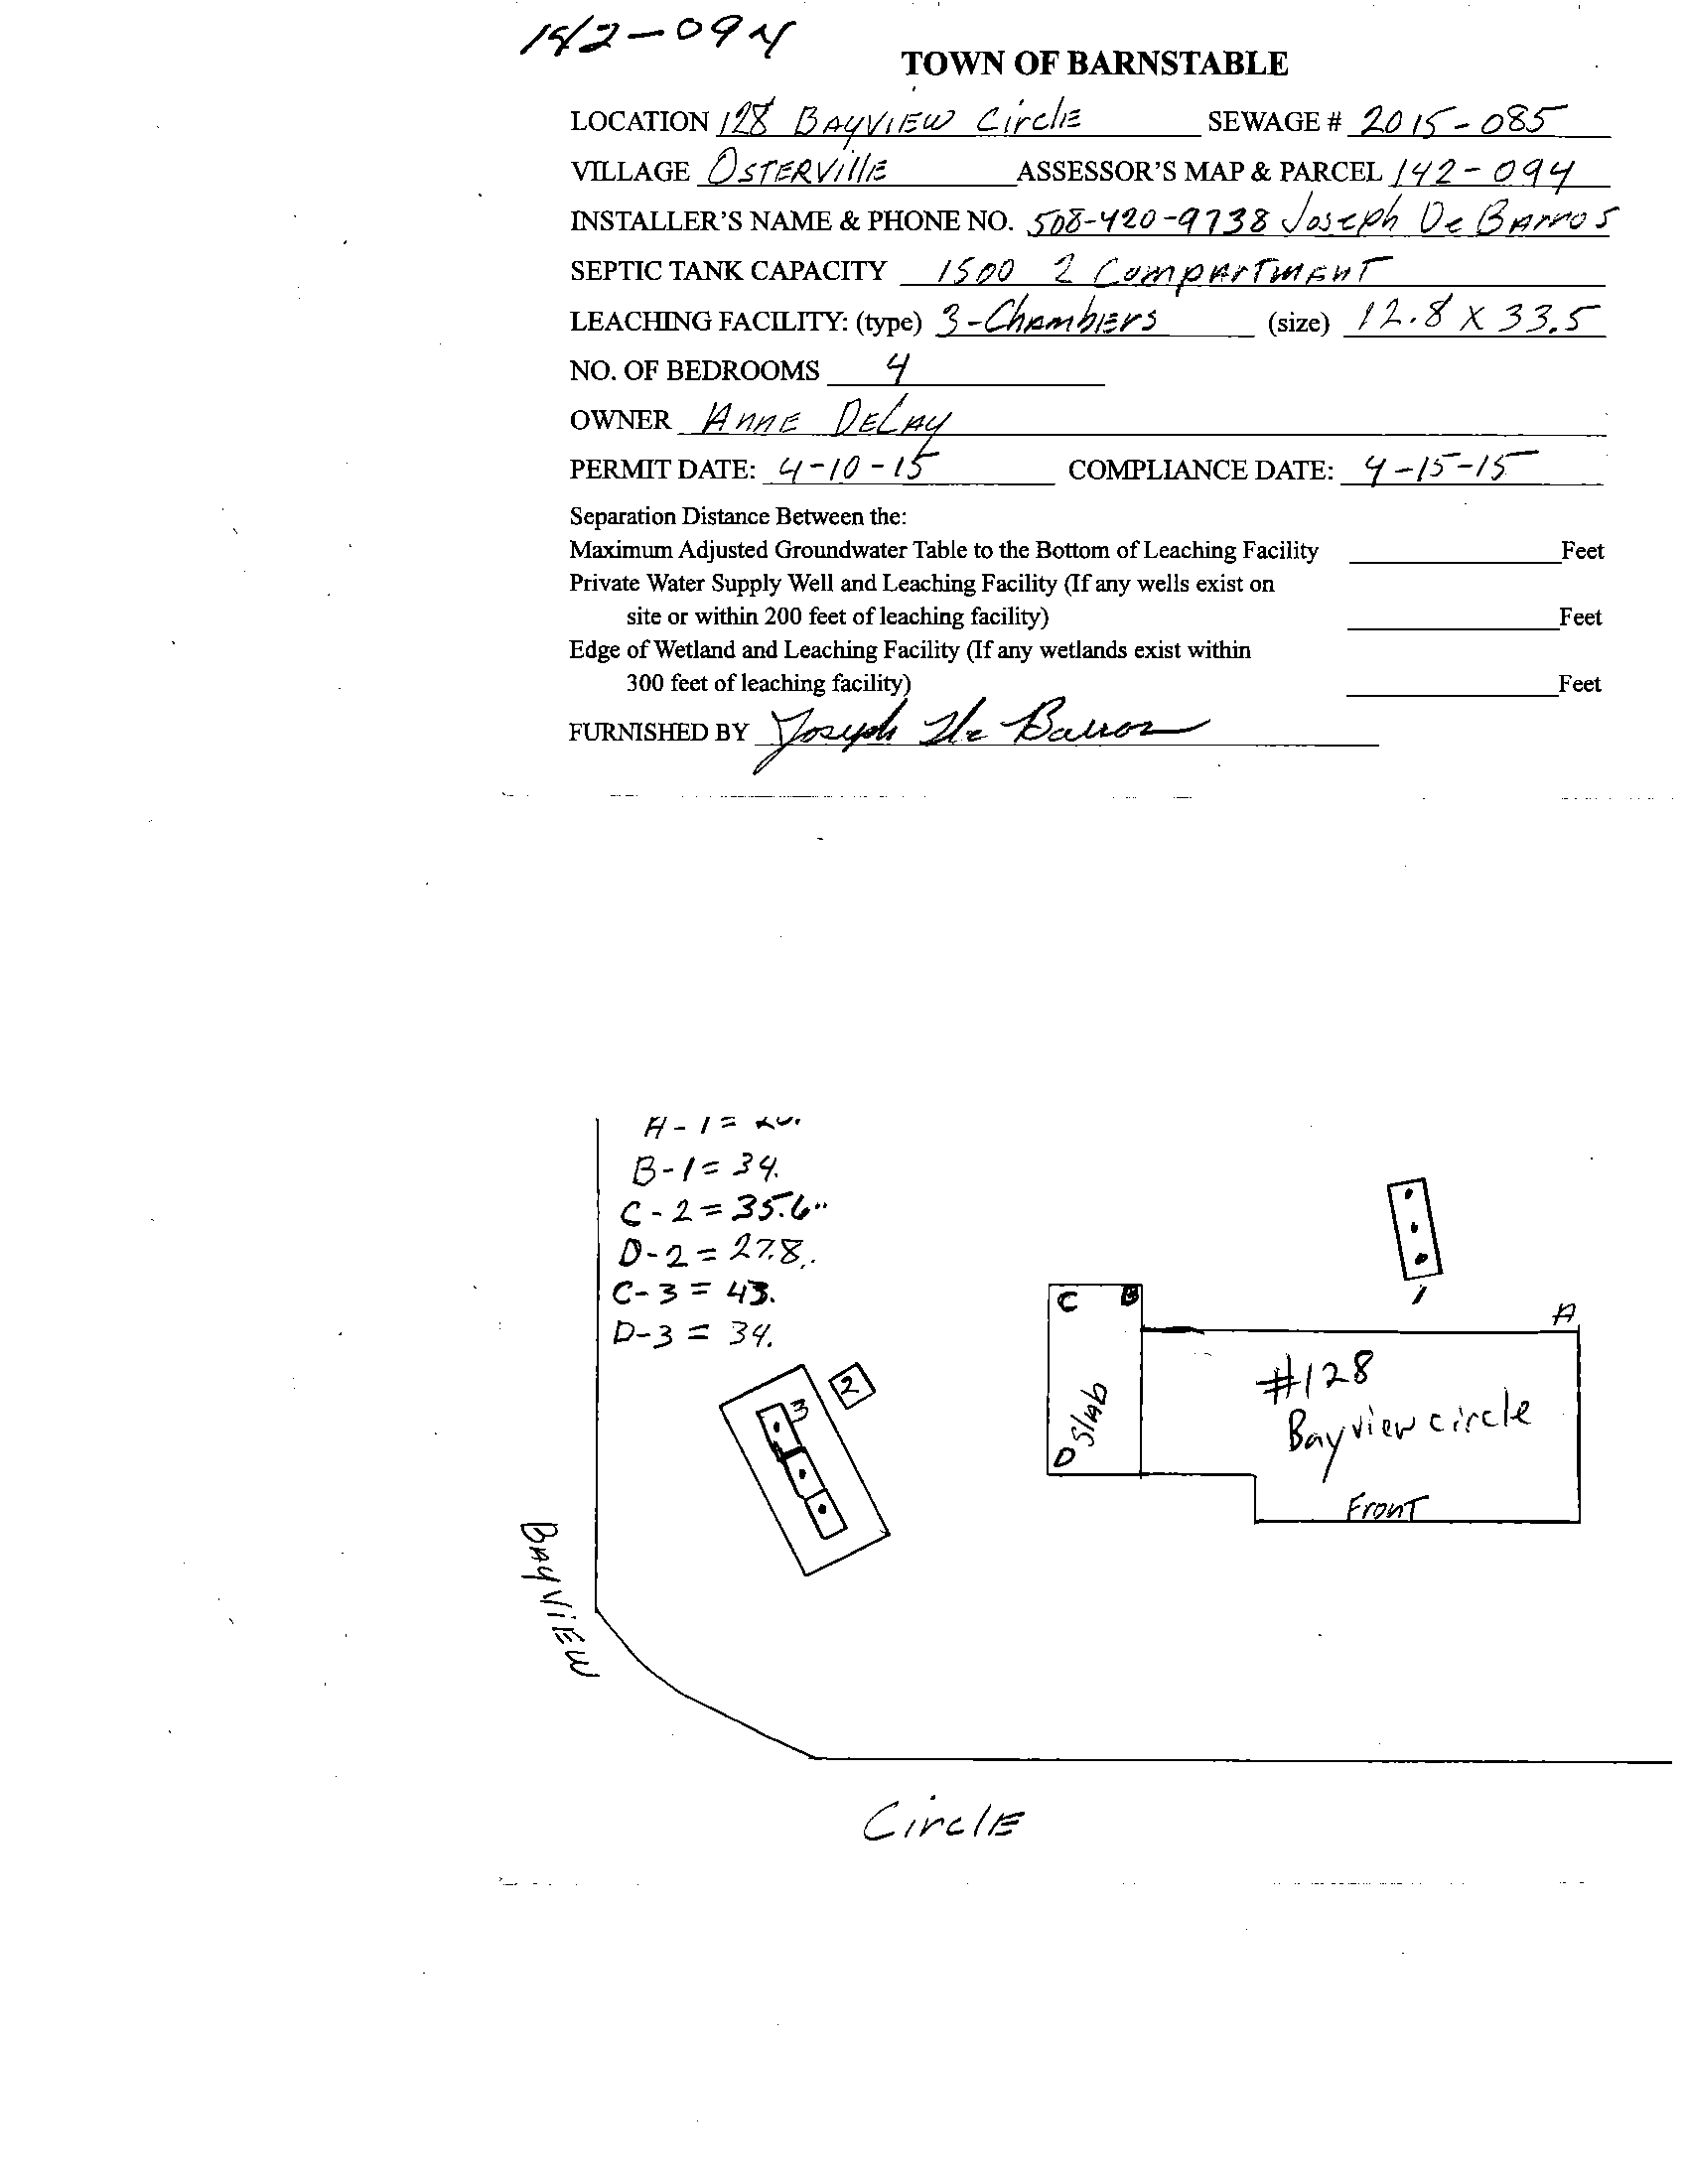 142-094
TOWN OF BARNSTABLE
LOCATION 128 BAYVIEW CirclE SEWAGE # 2015-085
VILLAGE OSTERVillE ASSESSOR'S MAP & PARCEL 142-094
INSTALLER'S NAME & PHONE NO. 508-420-9738 Joseph De BArros
SEPTIC TANK CAPACITY 1500 2 CompArTmENT
LEACHING FACILITY: (type) 3-ChambErs (size) 12.8 X 33.5
NO. OF BEDROOMS 4
OWNER AnnE DELAy
PERMIT DATE: 4-10-15 COMPLIANCE DATE: 4-15-15
Separation Distance Between the:
Maximum Adjusted Groundwater Table to the Bottom of Leaching Facility Feet
Private Water Supply Well and Leaching Facility (If any wells exist on
site or within 200 feet of leaching facility) Feet
Edge of Wetland and Leaching Facility (If any wetlands exist within
300 feet of leaching facility) Feet
FURNISHED BY Joseph De Barros
A-1=
B-1= 34.
C-2= 35.6"
D-2= 27.8.
C-3= 43.
D-3= 34.
1
C B
A
#128
Bayview circle
2
3
Slab
D
Front
BayViEW
CirclE